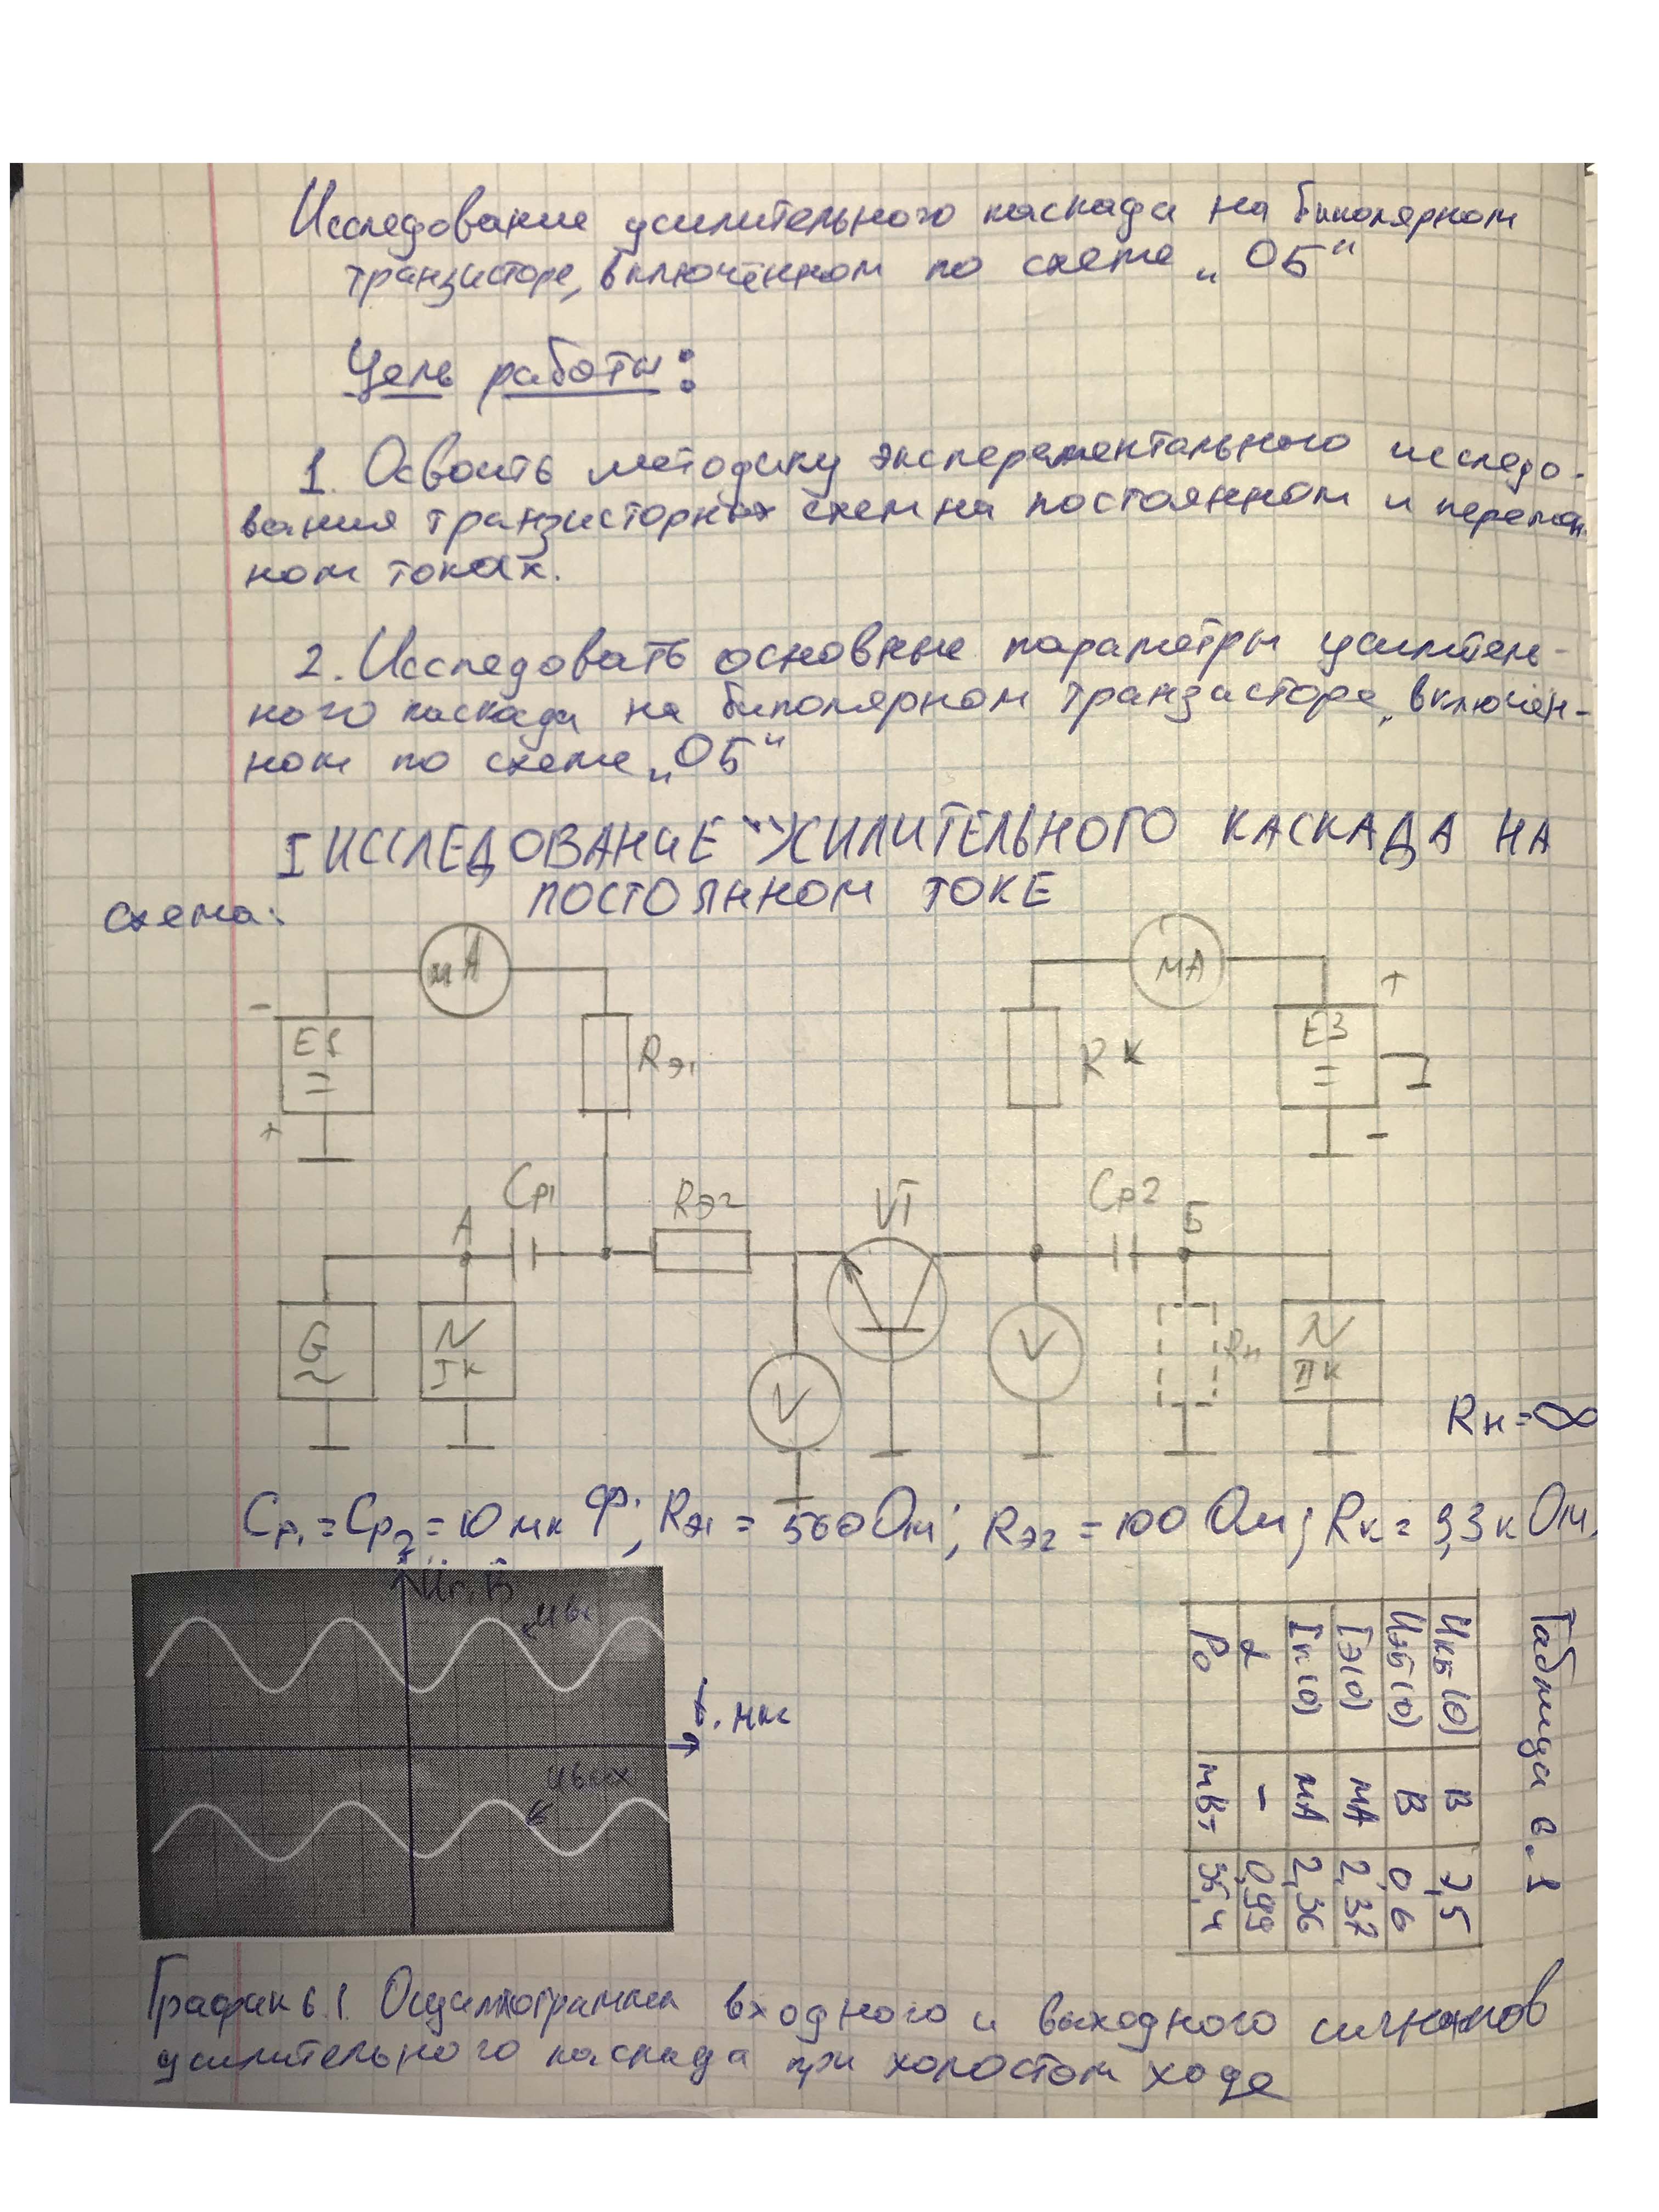 Исследование усилительного каскада на биполярном
транзисторе, включённом по схеме „ОБ“
Цель работы:
1. Освоить методику эксперементального исследо-
вания транзисторных схем на постоянном и перемен
ном токах.
2. Исследовать основные параметры усилитель-
ного каскада на биполярном транзисторе, включён-
ном по схеме „ОБ“
I ИССЛЕДОВАНИЕ УСИЛИТЕЛЬНОГО КАСКАДА НА
ПОСТОЯННОМ ТОКЕ
схема:
mA
мА
-
+
E1
=
+
Rэ1
Rк
E3
=
-
Cр1
Rэ2
VT
Cр2
А
Б
G
~
N
Iк
V
V
Rн
N
IIк
Rн=∞
Cр1=Cр2=10 мкФ; Rэ1=560 Ом; Rэ2=100 Ом; Rк=3,3 кОм.
Uвх
t, мкс
Uвых
Таблица 6.1
Uкб(0) В 3,5
Uэб(0) В 0,6
Iэ(0) мА 2,37
Iк(0) мА 2,36
α - 0,99
P0 мВт
График 6.1 Осциллограммы входного и выходного сигналов
усилительного каскада при холостом ходе